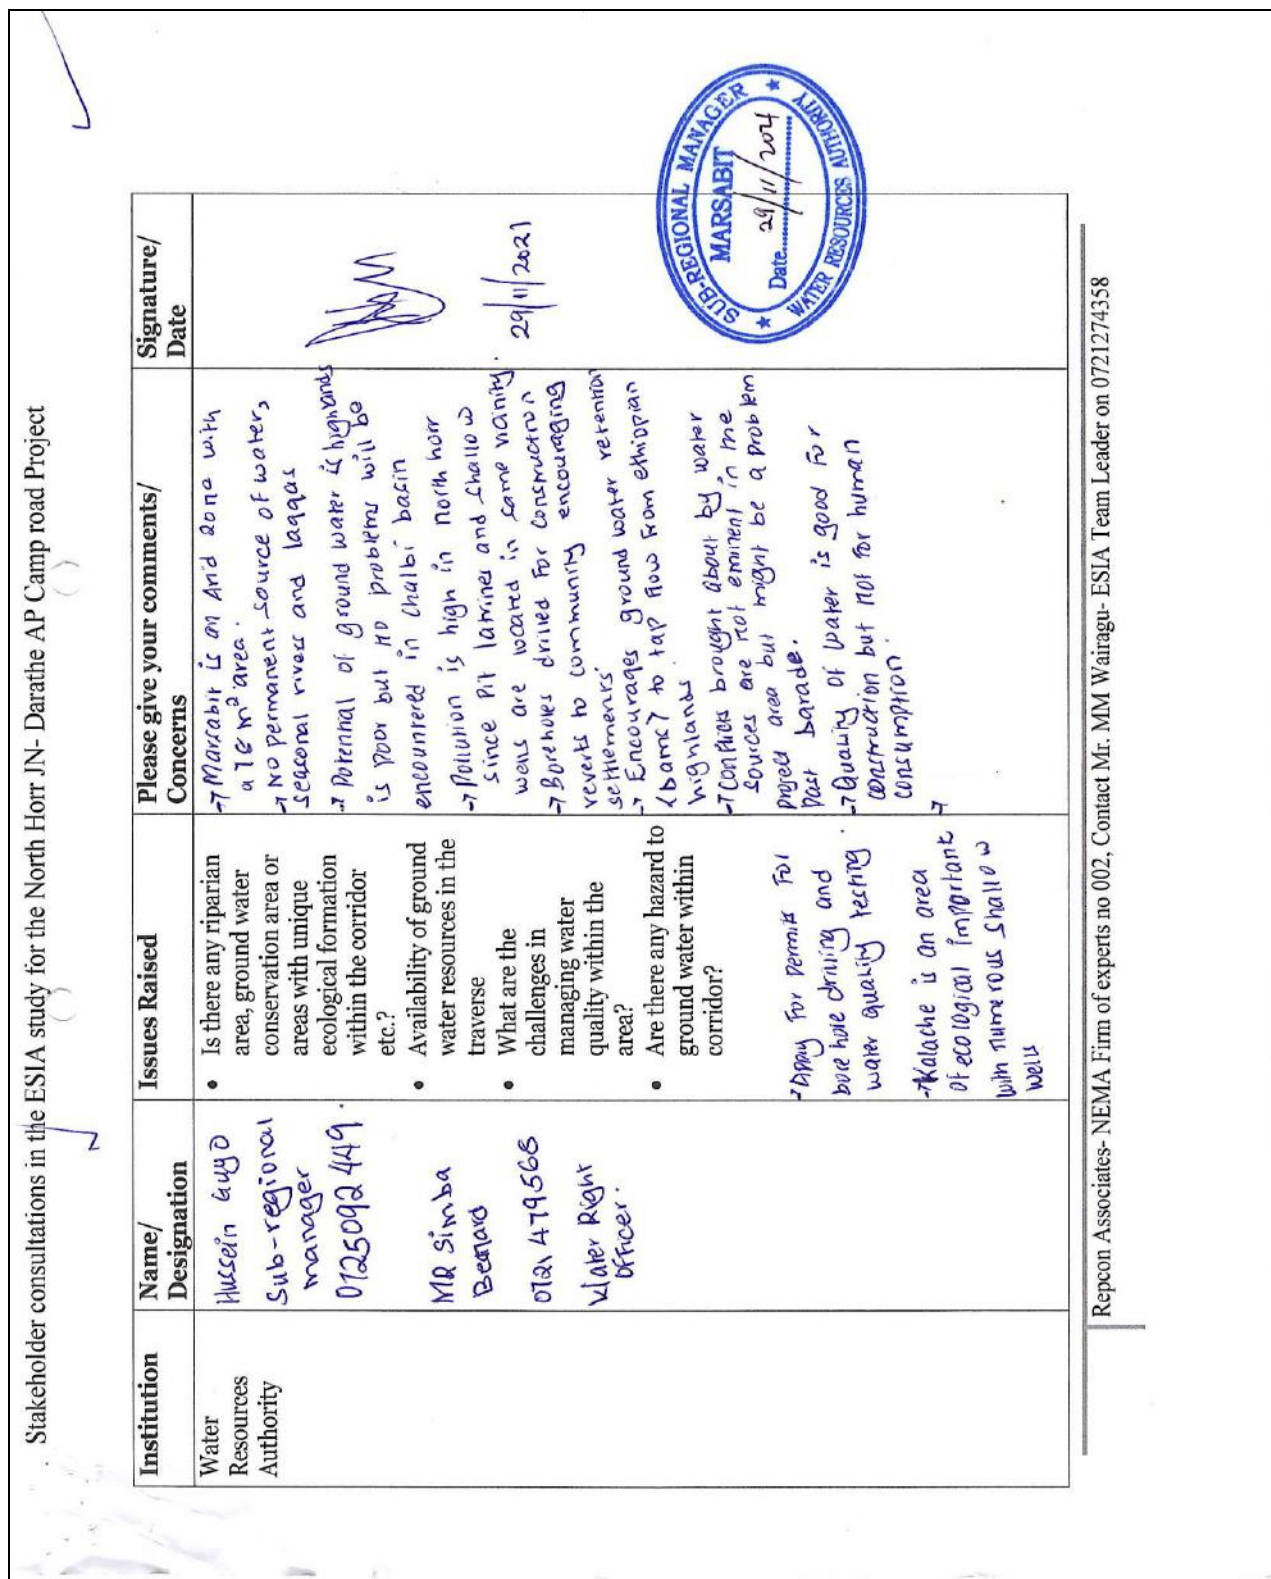 Stakeholder consultations in the ESIA study for the North Horr JN- Darathe AP Camp road Project
Institution
Name/
Designation
Issues Raised
Please give your comments/
Concerns
Signature/
Date
Water
Resources
Authority
Hussein Guyo
Sub-regional
manager
0725092449.
MR Simba
Bernard
0721479568
Water Right
Officer.
• Is there any riparian
area, ground water
conservation area or
areas with unique
ecological formation
within the corridor
etc.?
• Availability of ground
water resources in the
traverse
• What are the
challenges in
managing water
quality within the
area?
• Are there any hazard to
ground water within
corridor?
→ Apply For permits For
bore hole drilling and
water quality testing.
→ Kalache is an area
of ecological important
with numerous shallow
wells
→ Marsabit is an Arid zone with
a 78 m² area.
→ No permanent source of water,
seasonal rivers and laggas
→ Potential of ground water is highlands
is poor but no problems will be
encountered in chalbi basin
→ Pollution is high in north horr
since Pit latrines and shallow
wells are located in same vicinity.
→ Boreholes drilled for construction
reverts to community encouraging
settlements
→ Encourages ground water retention
(bams) to tap flow from ethiopian
highlands
→ Conflicts brought about by water
sources are not eminent in the
project area but might be a problem
past barade.
→ Quality of water is good for
construction but not for human
consumption.
→
29/11/2021
SUB-REGIONAL MANAGER
MARSABIT
Date 29/11/2021
WATER RESOURCES AUTHORITY
Repcon Associates- NEMA Firm of experts no 002, Contact Mr. MM Wairagu- ESIA Team Leader on 0721274358